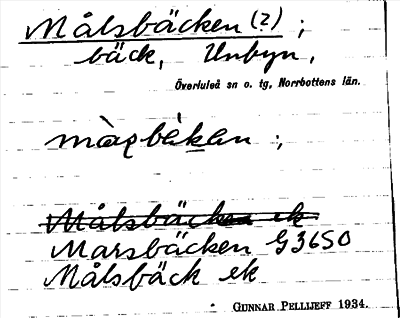 Målsbäcken (?) ;
bäck, Unbyn,
Överluleå sn o. tg, Norrbottens län.
màʂbèkan ;
Målsbäcken ek
Marsbäcken G3650
Målsbäck ek
GUNNAR PELLIJEFF 1934.